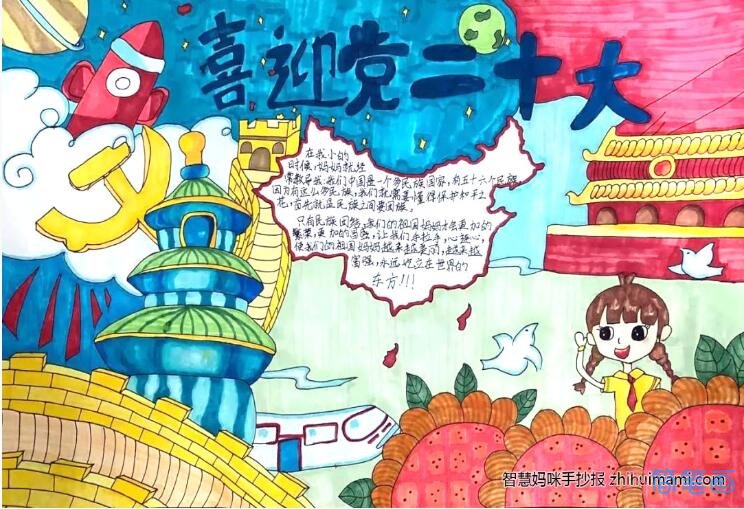 喜迎党二十大
在我小的
时候,妈妈就经
常教导我,我们中国是一个多民族国家,有五十六个民族
因为有这么多民族,我们就需要懂得保护和平之
花,首先就是民族之间要团族。
只有民族团结,我们的祖国妈妈才会更加的
繁荣,更加的富强,让我们手拉手,心连心,
使我们的祖国妈妈越来越美丽,越来越
富强,永远屹立在世界的
东方!!!
智慧妈咪手抄报 zhihuimami.com